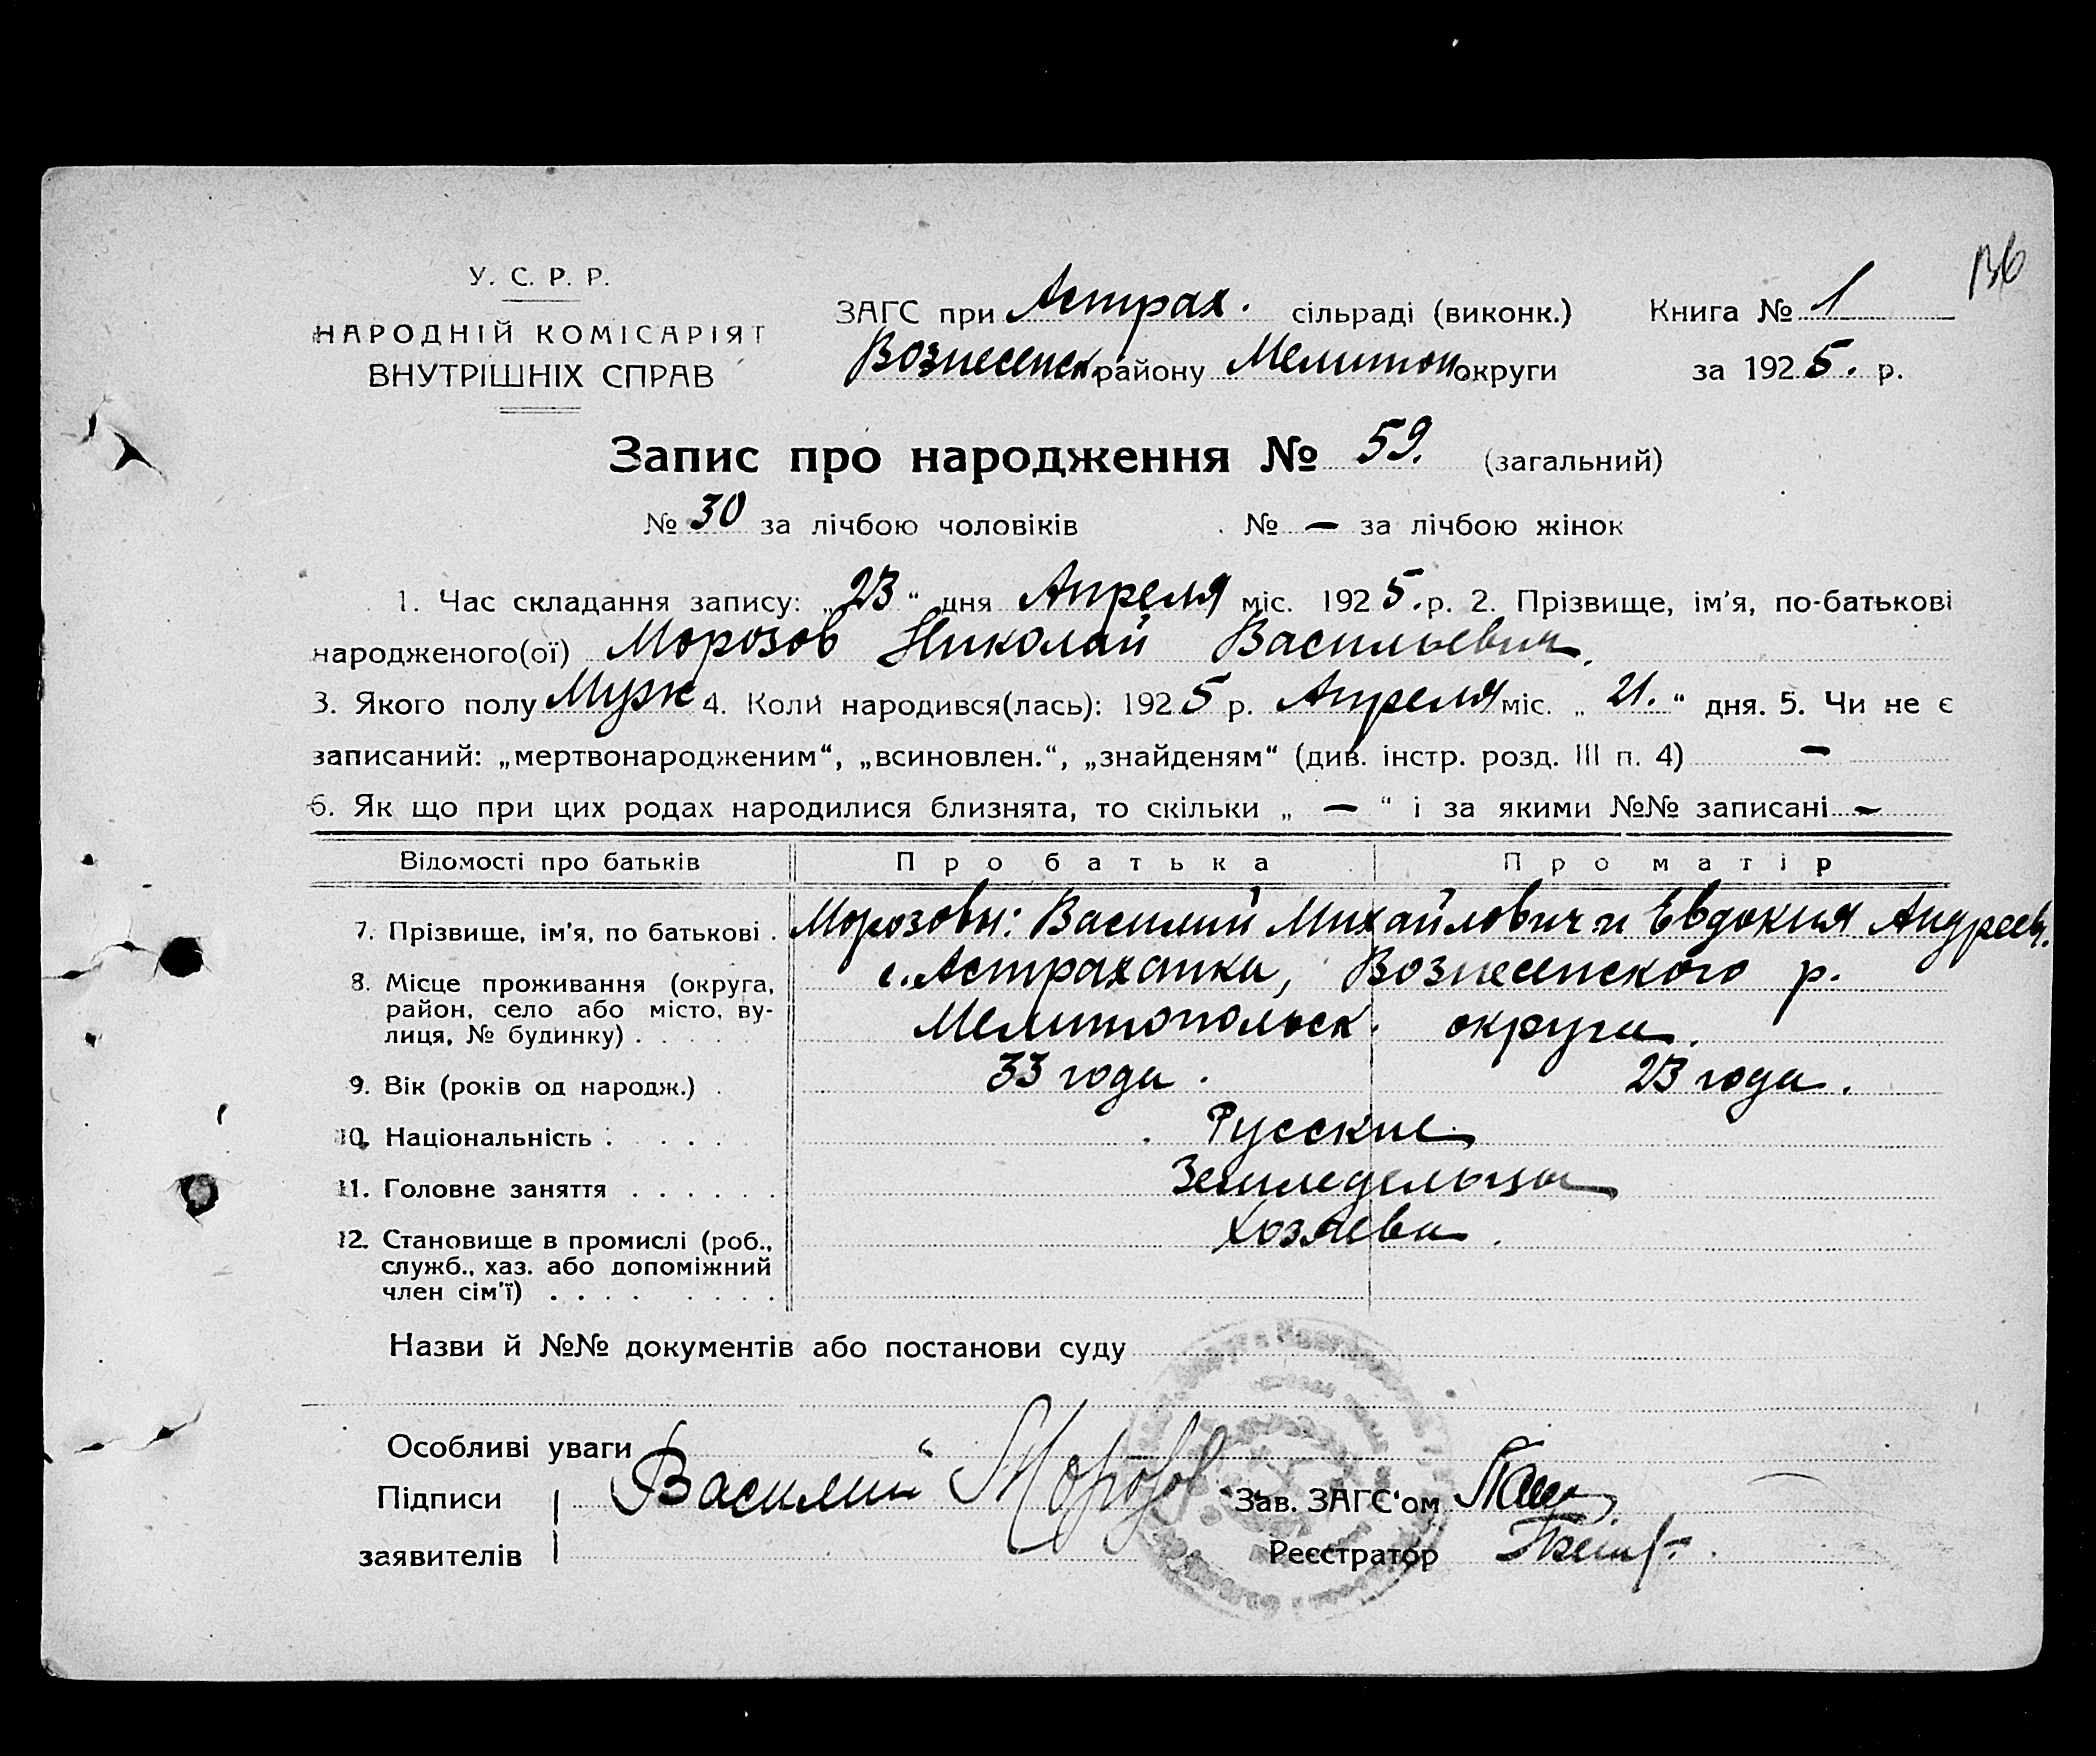 136
У. С. Р. Р.
НАРОДНІЙ КОМІСАРІЯТ
ВНУТРІШНІХ СПРАВ
ЗАГС при Астрах. сільраді (виконк.) Книга № 1
Вознесенск. району Мелитоп округи за 1925. р.
Запис про народження № 59. (загальний)
№ 30 за лічбою чоловіків № — за лічбою жінок
1. Час складання запису: „23“ дня Апреля міс. 1925. р. 2. Прізвище, ім'я, по-батькові
народженого(ої) Морозов Николай Васильевич.
3. Якого полу Муж 4. Коли народився(лась): 1925 р. Апреля міс. „21.“ дня. 5. Чи не є
записаний: „мертвонародженим“, „всиновлен.“, „знайденям“ (див. інстр. розд. III п. 4) —
6. Як що при цих родах народилися близнята, то скільки „—“ і за якими №№ записані —
Відомості про батьків Про батька Про матір
7. Прізвище, ім'я, по батькові . Морозовы: Василий Михайлович и Евдокия Андреев.
8. Місце проживання (округа, с. Астраханка, Вознесенского р.
район, село або місто, ву-
лиця, № будинку) . . . . . Мелитопольск. округи.
9. Вік (років од народж.) . 33 года . 23 года .
10. Національність . . . . . Русские
11. Головне заняття . . . . . . Земледельцы
12. Становище в промислі (роб., Хозяева .
служб., хаз. або допоміжний
член сім'ї) . . . . . . . .
Назви й №№ документів або постанови суду
Особливі уваги
Підписи Василий Морозов Зав. ЗАГС'ом
заявителів Реєстратор